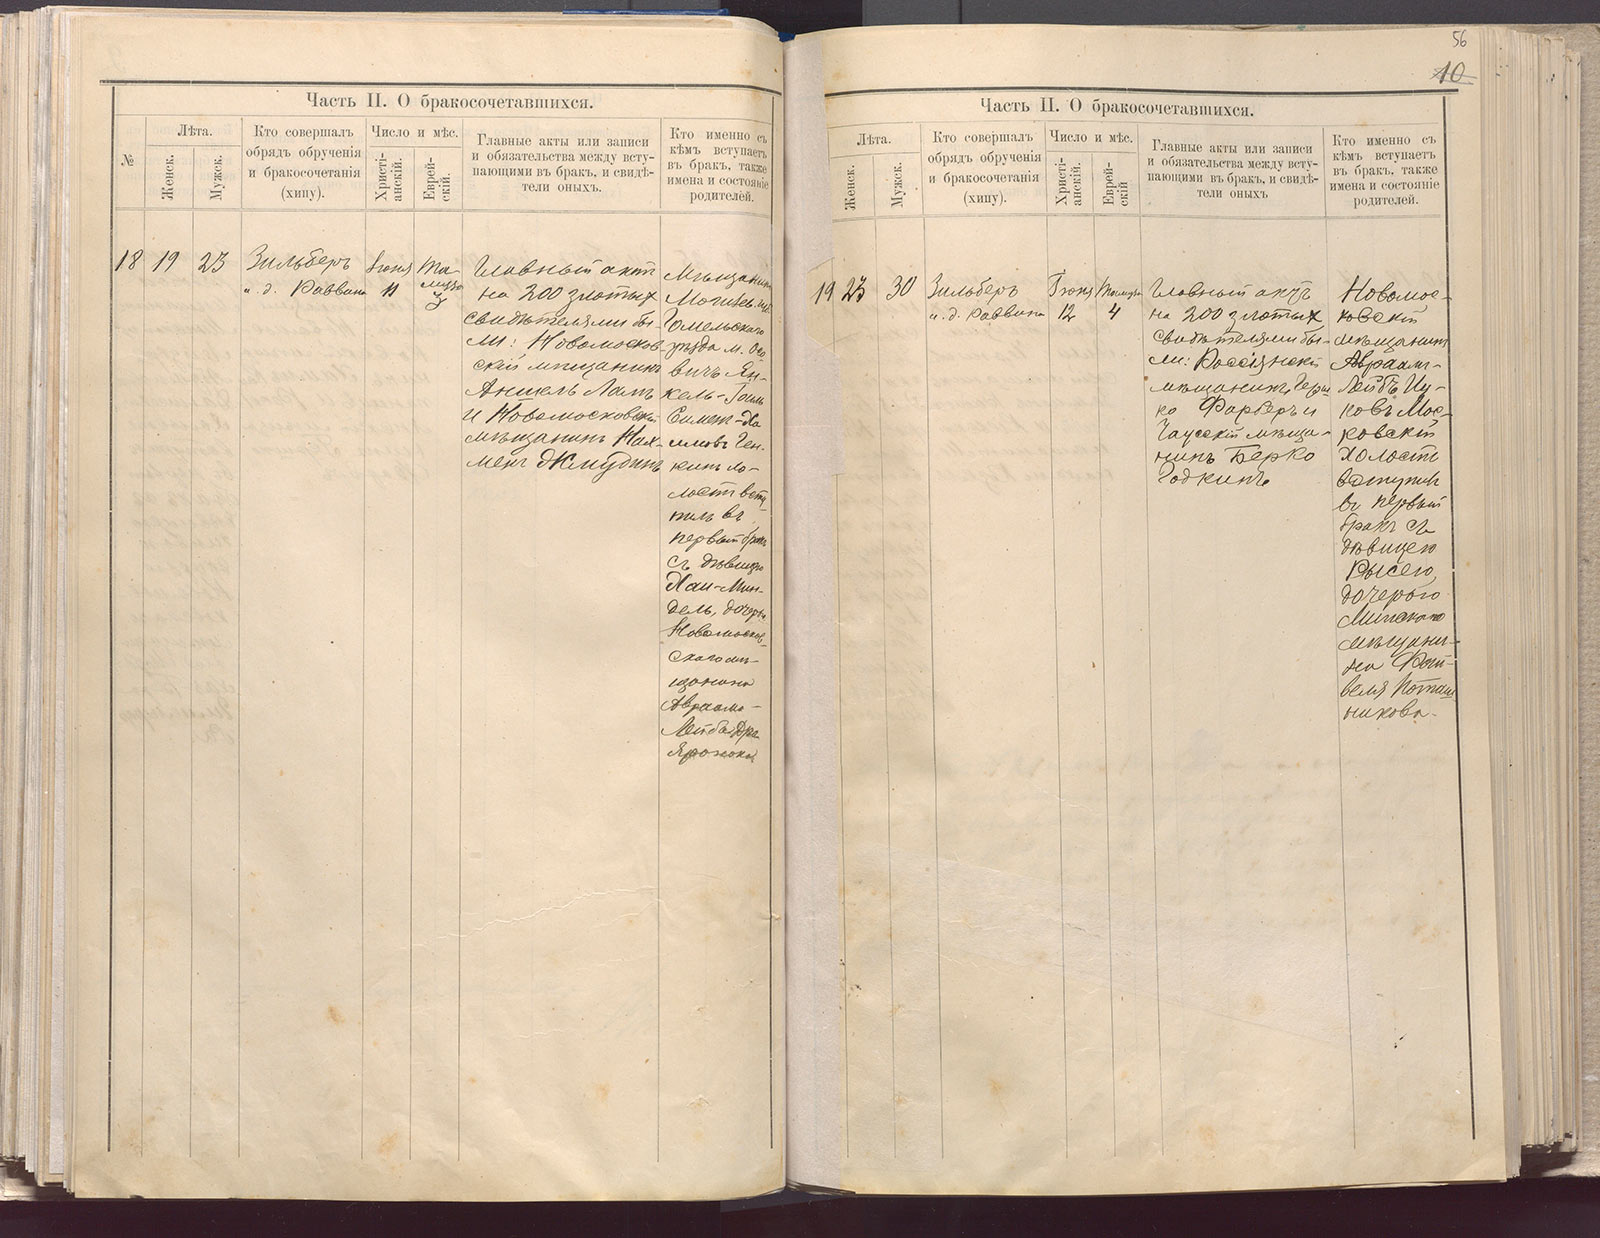 Часть II. О бракосочетавшихся.
№
Лѣта.
Женск.
Мужск.
Кто совершалъ
обрядъ обрученія
и бракосочетанія
(хипу).
Число и мѣс.
Христі-
анскій.
Еврей-
скій.
Главные акты или записи
и обязательства между всту-
пающими въ бракъ, и свидѣ-
тели оныхъ.
Кто именно съ
кѣмъ вступаетъ
въ бракъ, также
имена и состояніе
родителей.
18
19
23
Зильберъ
и. д. Раввина
Іюня
11
Та-
музъ
3
Главный актъ
на 200 злотыхъ
свидѣтелями бы-
ли: Новомосков-
скій мѣщанинъ
Аншель Ламъ
и Новомосковскій
мѣщанинъ Нах-
менъ Жмудинъ
Мѣщанинъ
Могилев. губ.
Гомельскаго
уѣзда м.
вичъ Ян-
кель-
холостъ всту-
пилъ въ
первый бракъ
съ дѣвицею
Хаи-Мин-
дель, дочерью
Новомосков-
скаго мѣ-
щанина
Авраама-
Лейба
56
10
Часть II. О бракосочетавшихся.
Лѣта.
Женск.
Мужск.
Кто совершалъ
обрядъ обрученія
и бракосочетанія
(хипу).
Число и мѣс.
Христі-
анскій.
Еврей-
скій
Главные акты или записи
и обязательства между всту-
пающими въ бракъ, и свидѣ-
тели оныхъ
Кто именно съ
кѣмъ вступаетъ
въ бракъ, также
имена и состояніе
родителей.
19
23
30
Зильберъ
и. д. Раввина
Іюня
12
Тамузъ
4
Главный актъ
на 200 злотыхъ
свидѣтелями бы-
ли: Россіянскій
мѣщанинъ Герш-
ко Фарберъ и
Чаусскій мѣща-
нинъ Берко
Годкинъ
Новомос-
ковскій
мѣщанинъ
Авраамъ-
Лейбъ Иц-
ковъ Мос-
ковскій
холостъ
вступилъ
въ первый
бракъ съ
дѣвицею
Рысею,
дочерью
Минскаго
мѣщани-
на Фай-
веля Поташ
никова.